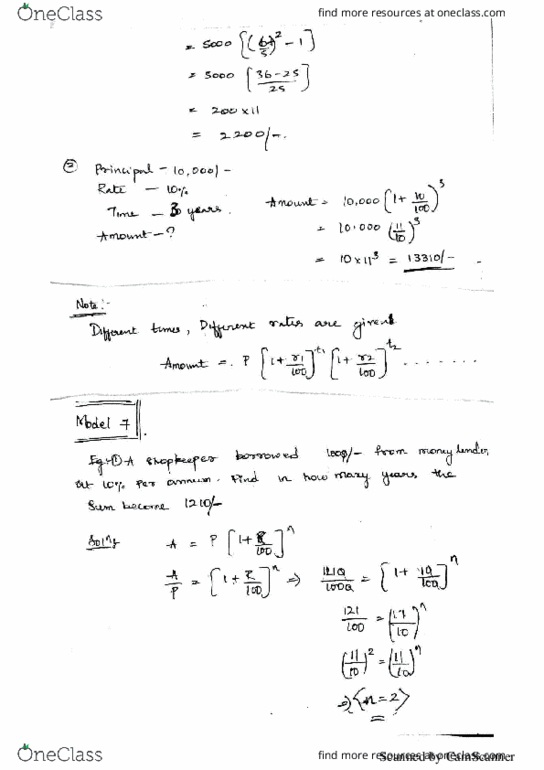 OneClass
find more resources at oneclass.com
find more resources at oneclass.com
= 5000 [(6/5)² - 1]
= 5000 [36-25/25]
= 200 x 11
= 2200/-.
② Principal - 10,000/-
Rate - 10%
Time - 3 years.
Amount - ?
Amount = 10,000 (1 + 10/100)³
= 10.000 (11/10)³
= 10 x 11³ = 13310/-
Note:-
Different times, Different rates are given
Amount =. P [1 + r1/100]^t1 [1 + r2/100]^t2 .......
Model 7
Eg:-① A shopkeeper borrowed 1000/- from money lender
at 10% per annum. Find in how many years the
Sum become 1210/-
A = P [1 + R/100]^n
A/P = [1 + R/100]^n ⇒ 1210/1000 = [1 + 10/100]^n
121/100 = (11/10)^n
(11/10)² = (11/10)^n
⇒ {n = 2}
OneClass
find more resources at oneclass.com
Scanned by CamScanner